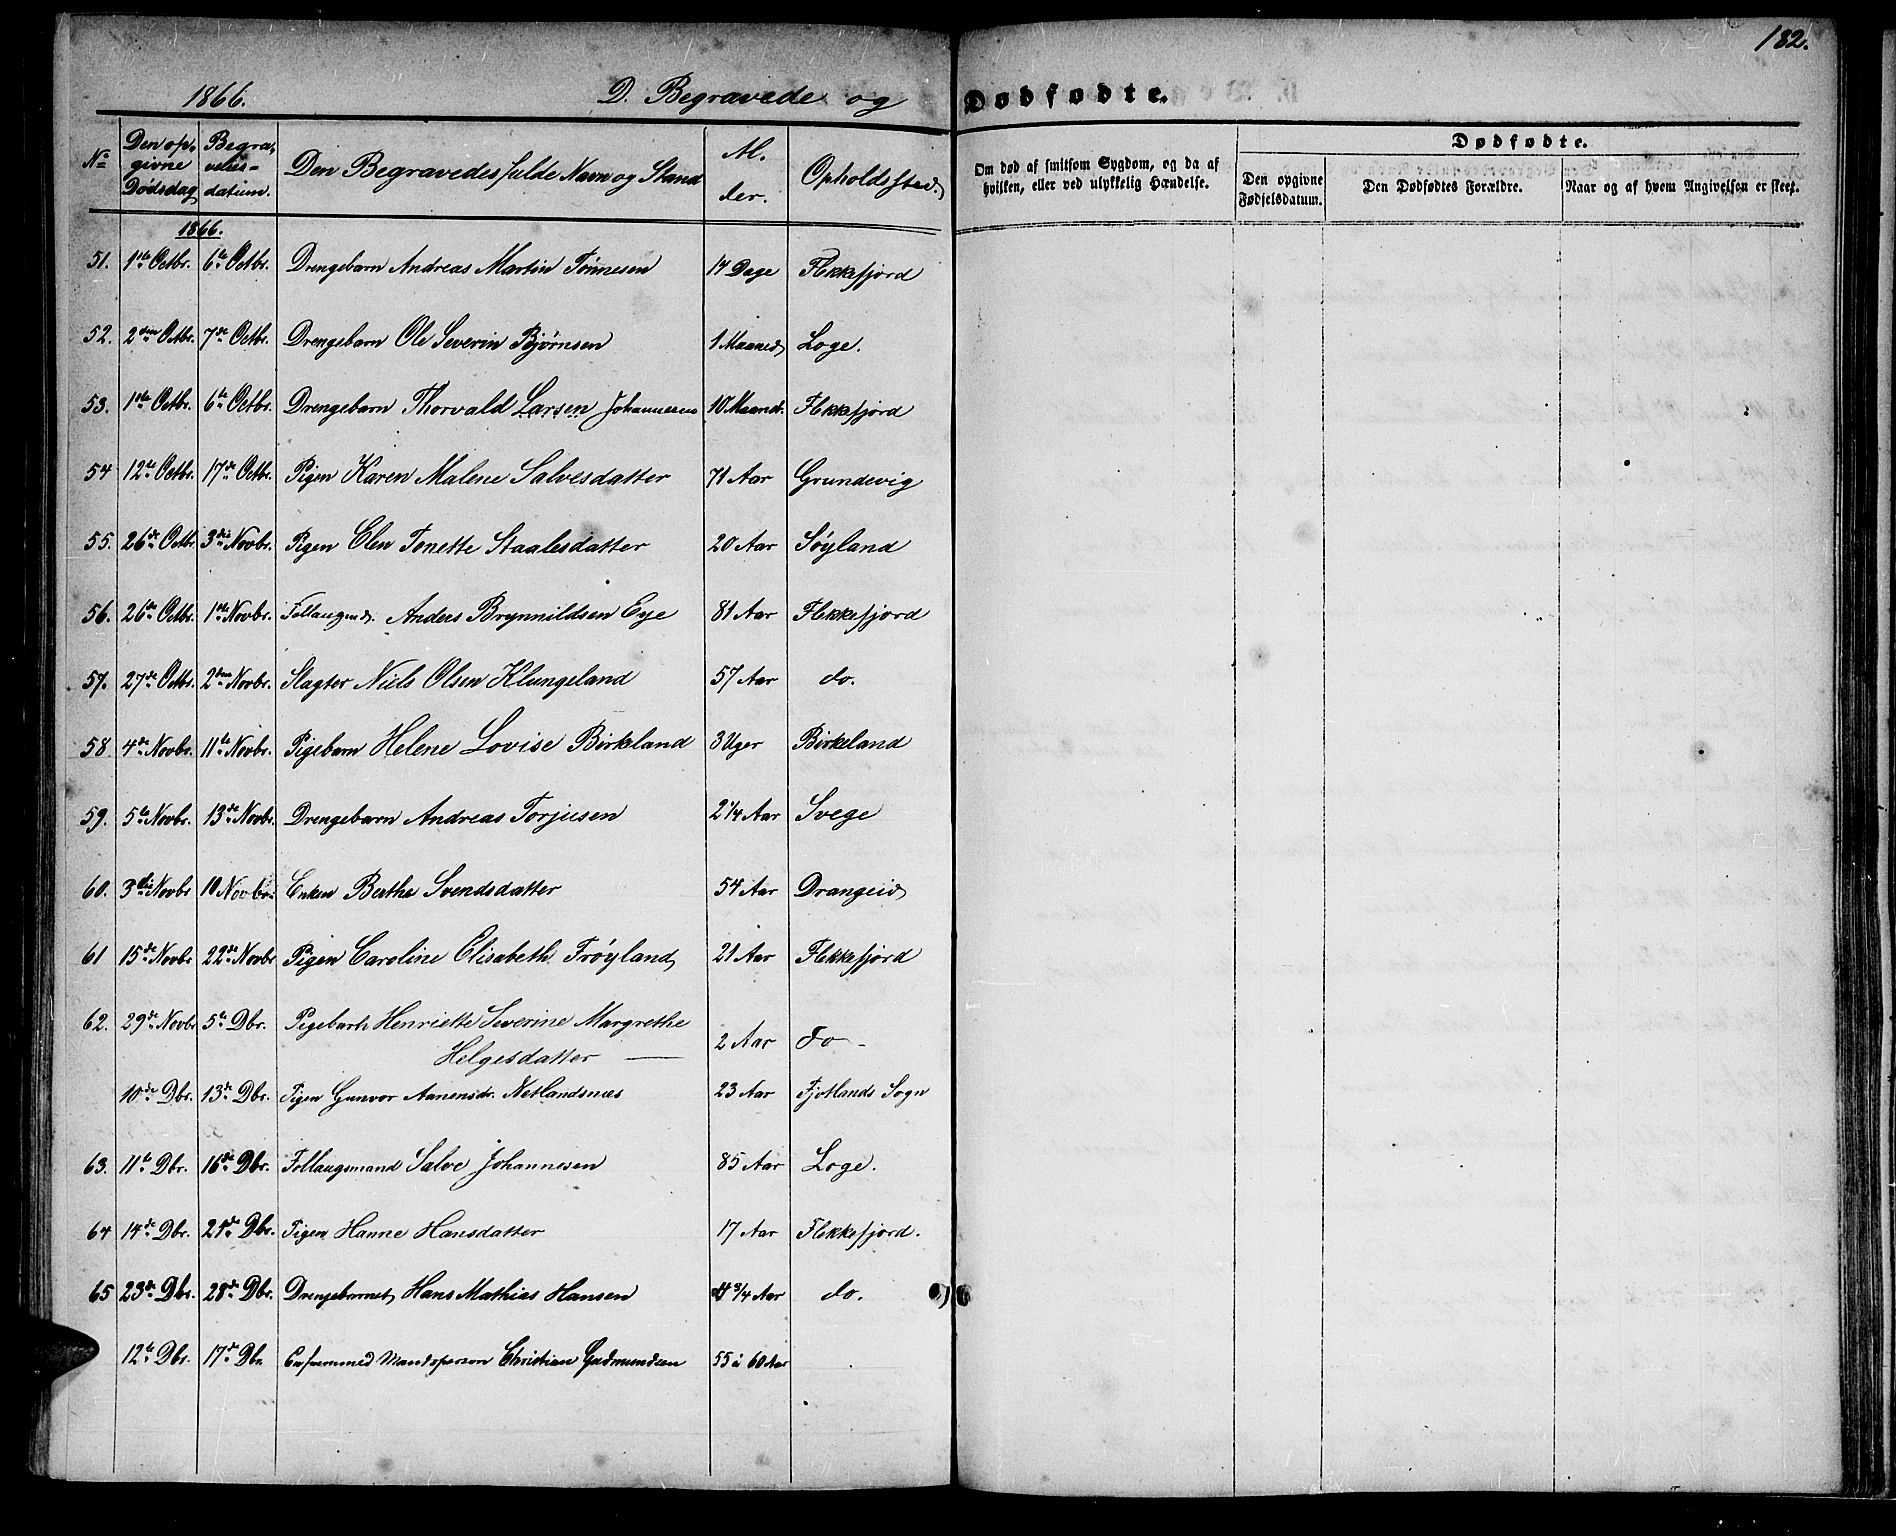 182.
1866. D. Begravede og Dødfødte.
No Den opgivne Dødsdag Begravelsesdatum. Den Begravedes fulde Navn og Stand Alder. Opholdssted
Om død af smitsom Sygdom, og da af hvilken, eller ved ulykkelig Hændelse. Dødfødte. Den opgivne Fødselsdatum. Den Dødfødtes Forældre. Naar og af hvem Angivelsen er skeet.
1866.
51. 1ste Octbr. 6te Octbr. Drengebarn Andreas Martin Tønnesen 17 Dage Flekkefjord
52. 2den Octbr. 7de Octbr. Drengebarn Ole Severin Bjørnsen 1 Maaned Loge.
53. 1ste Octbr. 6te Octbr. Drengebarn Thorvald Larsen Johannesen 10 Maand. Flekkefjord
54 12te Octbr. 17de Octbr. Pigen Karen Malene Salvesdatter 71 Aar Grundevig
55. 26de Octbr 3die Novbr. Pigen Elen Tonette Staalesdatter 20 Aar Søyland
56. 26de Octbr. 1ste Novbr. Follaugmd. Anders Brynnildsen Eye 81 Aar Flekkefjord
57. 27de Octbr. 2den Novbr. Slagter Niels Olsen Klungeland 57 Aar do.
58 4de Novbr. 11te Novbr. Pigebarn Helene Lovise Birkeland 3 Uger Birkeland
59. 5te Novbr. 13de Novbr. Drengebarn Andreas Torjusen 2 1/4 Aar Svege
60. 3die Novbr 10 Novbr. Enken Berthe Svendsdatter 54 Aar Drangeid
61 15de Novbr 22de Novbr Pigen Caroline Elisabeth Trøyland 21 Aar Flekkefjord
62. 29de Novbr 5te Dbr. Pigebarn Henriette Severine Margrethe
Helgesdatter — 2 Aar Do -
10de Dbr. 13de Dbr. Pigen Gunvor Aanensdr. Netlandsnæs 23 Aar Fjotlands Sogn
63. 11te Dbr. 16de Dbr. Follaugsmand Salve Johannesen 85 Aar Loge.
64 14de Dbr. 21de Dbr. Pigen Hanne Hansdatter 17 Aar Flekkefjord.
65 23de Dbr. 28de Dbr. Drengebarnet Hans Mathias Hansen 4 3/4 Aar do.
12te Dbr. 17de Dbr. En fremmed Mandsperson Christian Gudmundsen 55 à 60 Aar